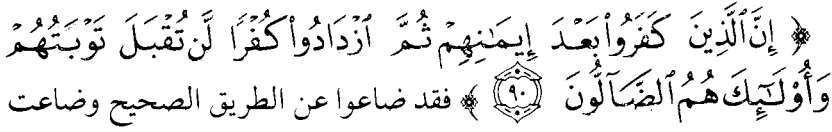 ﴿ إِنَّ ٱلَّذِينَ كَفَرُوا۟ بَعْدَ إِيمَٰنِهِمْ ثُمَّ ٱزْدَادُوا۟ كُفْرًا لَّن تُقْبَلَ تَوْبَتُهُمْ
وَأُو۟لَٰٓئِكَ هُمُ ٱلضَّآلُّونَ ٩٠ ﴾ فقد ضاعوا عن الطريق الصحيح وضاعت